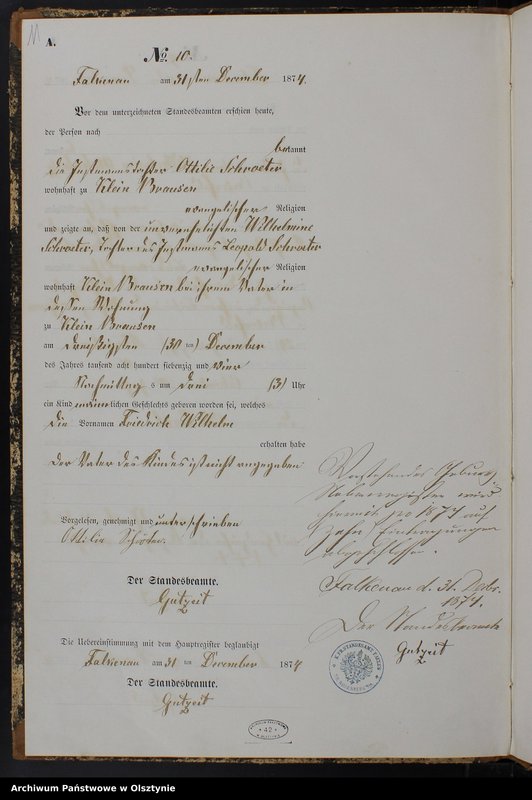 A.
No. 10.
Falkenau am 31ten December 1874.
Vor dem unterzeichneten Standesbeamten erschien heute,
der Person nach
bekannt
die Instmannstochter Ottilie Schroeter
wohnhaft zu Klein Brausen
evangelischer Religion
und zeigte an, daß von der unverehelichten Wilhelmine
Schroeter, Tochter des Instmanns Leopold Schroeter
evangelischer Religion
wohnhaft Klein Brausen bei ihrem Vater in
dessen Wohnung
zu Klein Brausen
am dreißigsten (30 ten) December
des Jahres tausend acht hundert siebenzig und vier
Nachmittags um drei (3) Uhr
ein Kind männlichen Geschlechts geboren worden sei, welches
die Vornamen Friedrich Wilhelm
erhalten habe
der Vater des Kindes ist nicht angegeben
Vorgelesen, genehmigt und unterschrieben
Ottilie Schröter.
Der Standesbeamte.
Gutzeit
Die Uebereinstimmung mit dem Hauptregister beglaubigt
Falkenau am 31 ten December 1874
Der Standesbeamte.
Gutzeit
Vorstehendes Geburts
Nebenregister wird
hiermit pro 1874 auf
zehn Eintragungen
abgeschlossen.
Falkenau d. 31. Debr.
1874.
Der Standesbeamte
Gutzeit
42
Archiwum Państwowe w Olsztynie